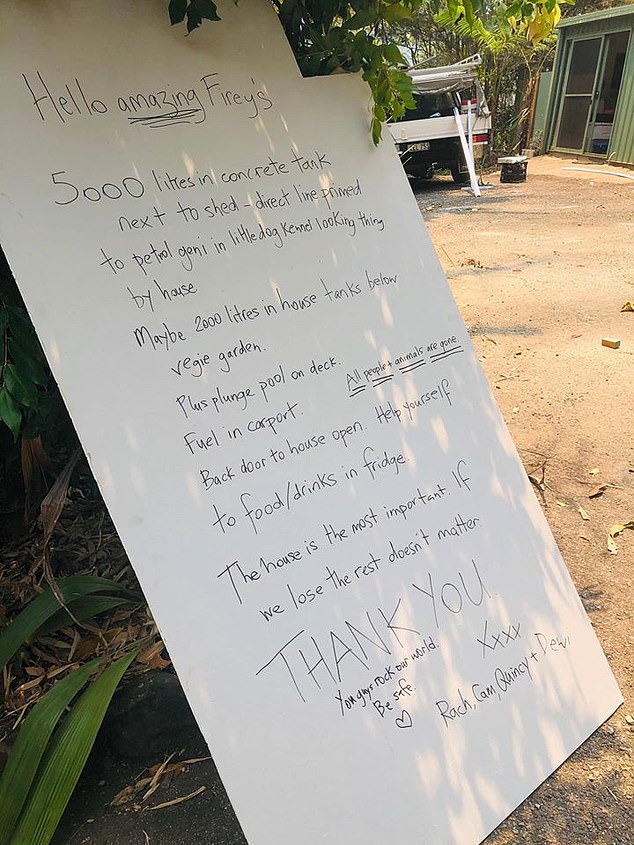 Hello amazing Firey's
5000 litres in concrete tank
next to shed - direct line primed
to petrol geni in little dog kennel looking thing
by house
Maybe 2000 litres in house tanks below
vegie garden.
Plus plunge pool on deck.
All people + animals are gone.
Fuel in carport.
Back door to house open. Help yourself
to food/drinks in fridge.
The house is the most important. If
we lose the rest doesn't matter
THANK YOU.
You guys rock our world.
Be safe.
xxxx
Rach, Cam, Quincy + Dewi